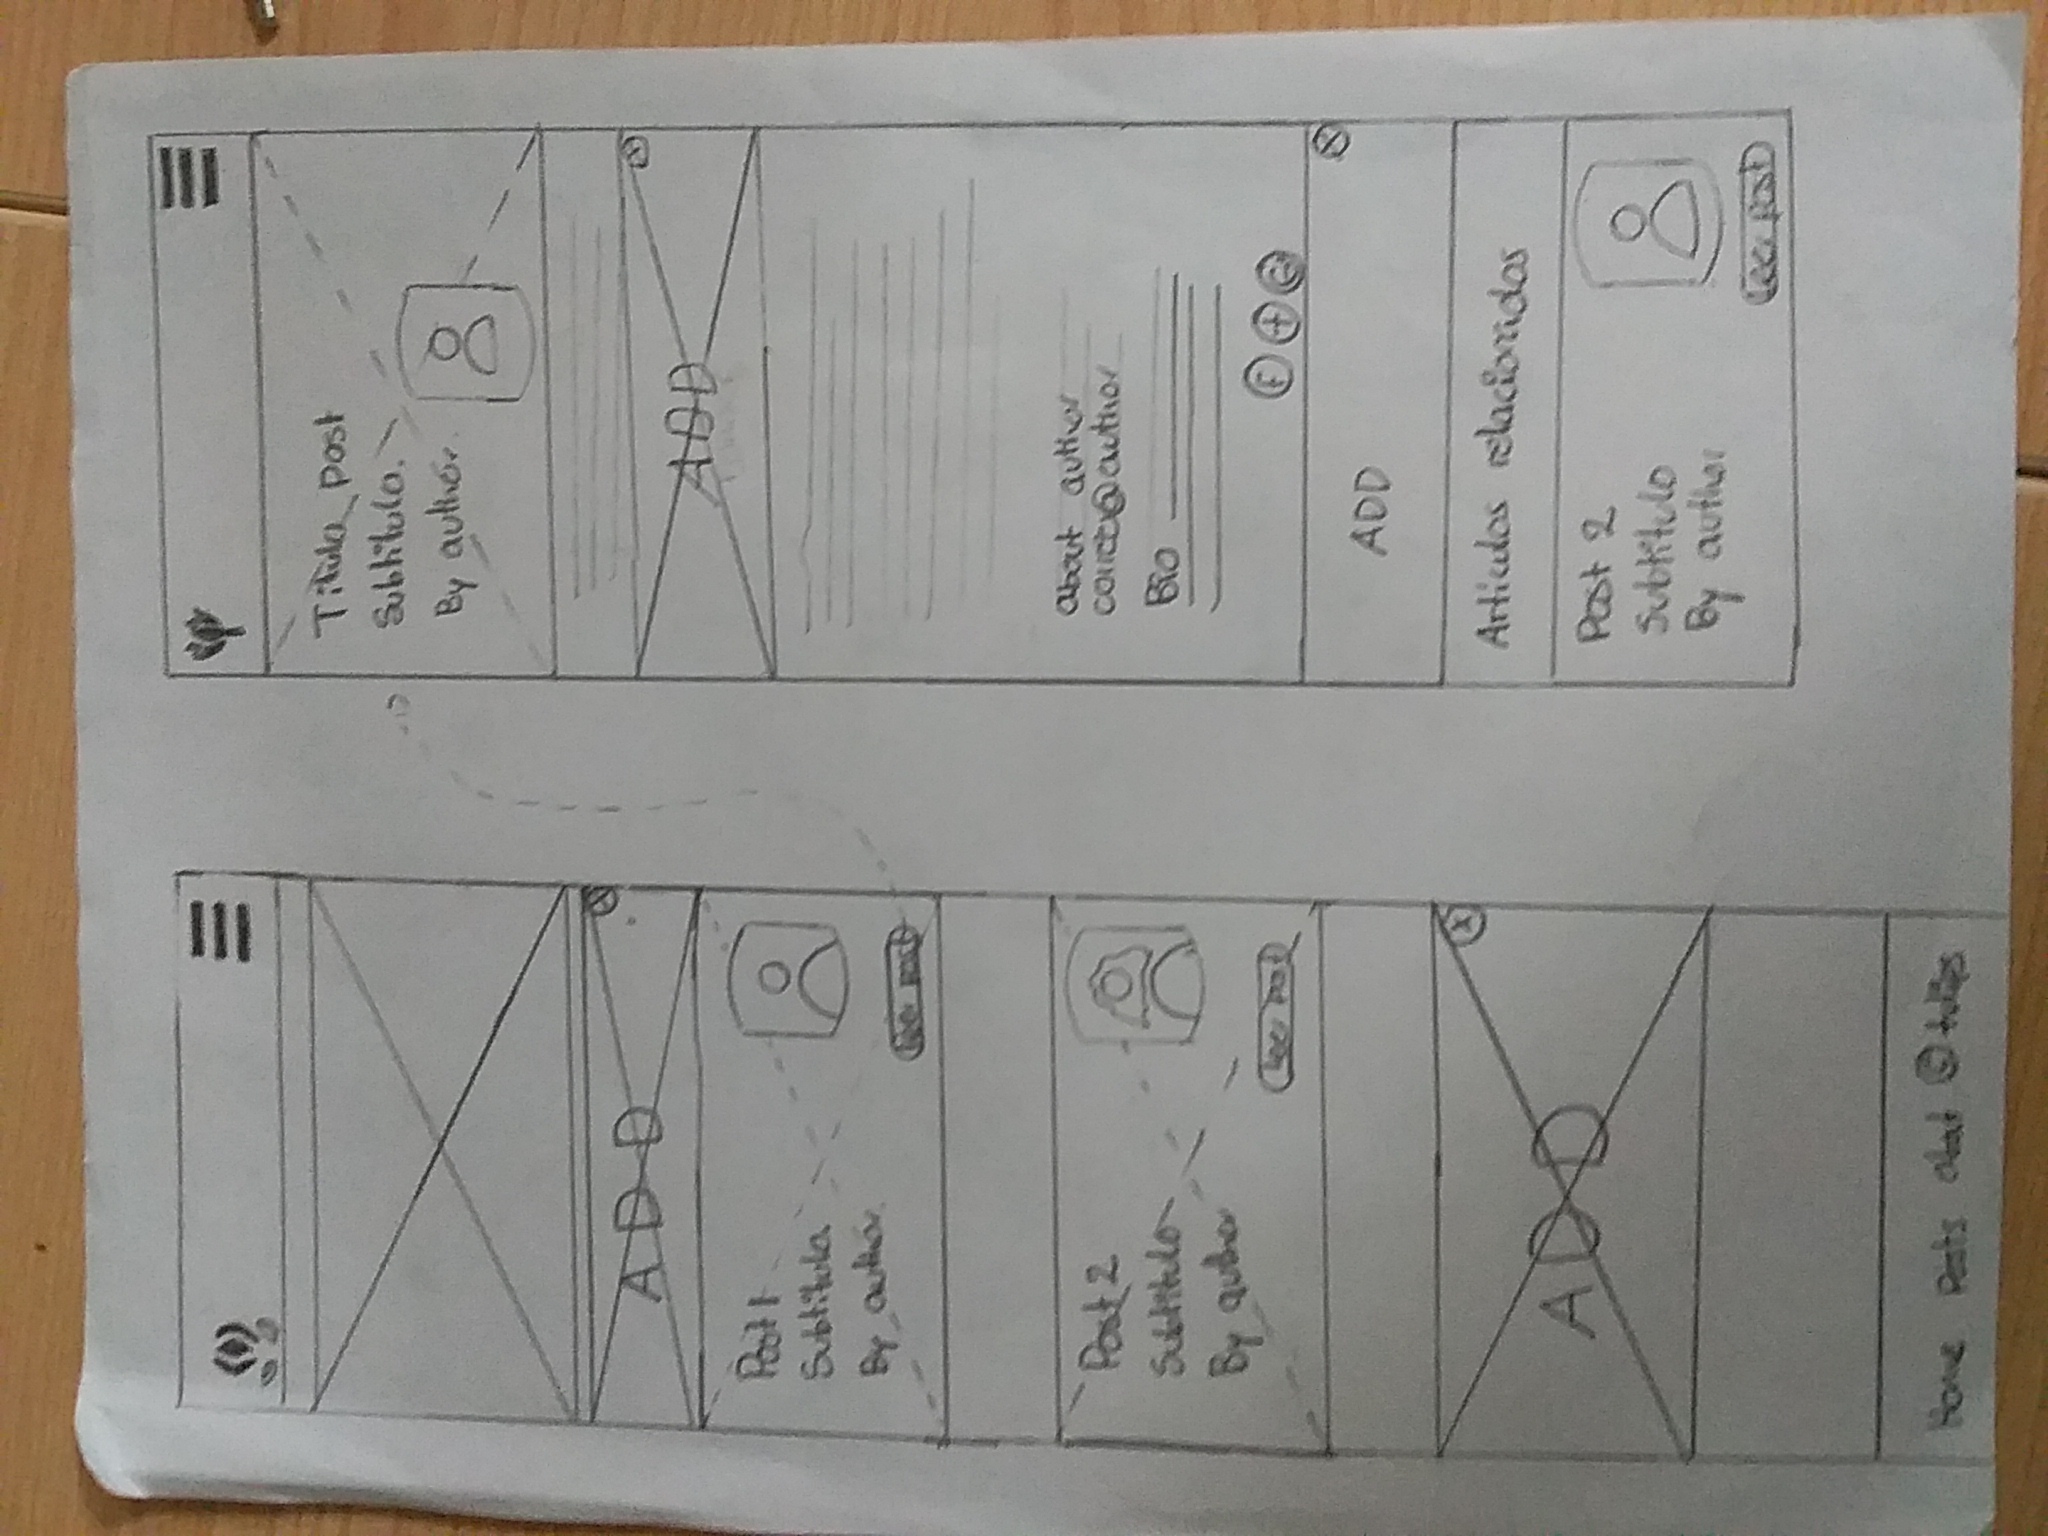 ADD
Post 1
Subtitulo
By author.
Leer post
Post 2
Subtitulo
By author
Leer post
ADD
Home Posts about © tulips
Titulo post
Subtitulo.
By author.
ADD
about author
correo@author
Bio
F + G+
ADD
Articulos relacionados
Post 2
Subtitulo
By author
Leer post